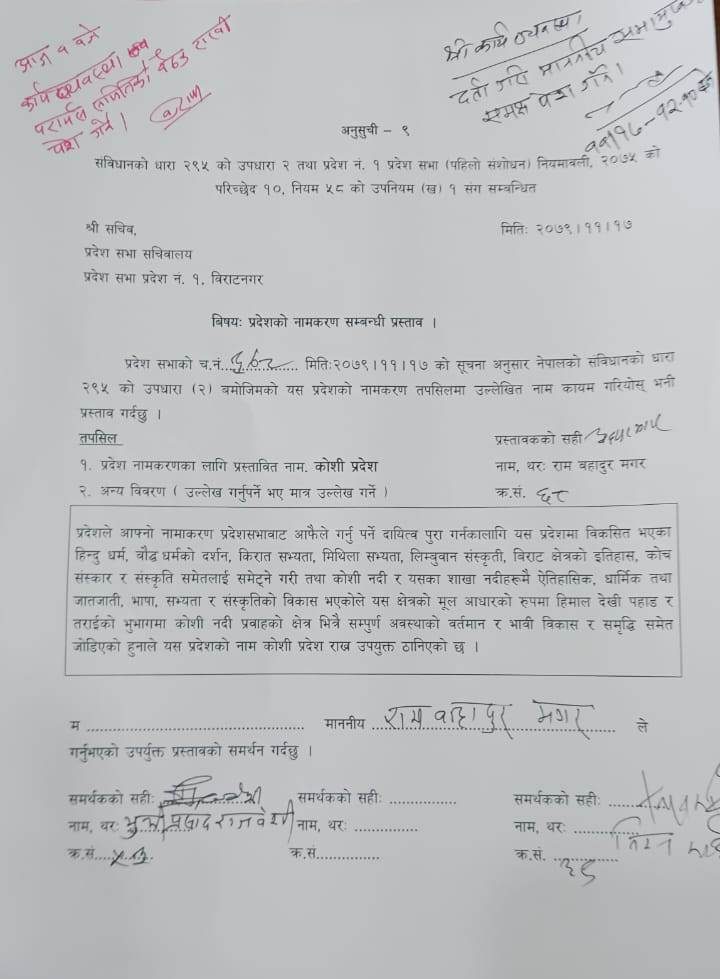 आज १ बजे
कार्यव्यवस्था
परामर्श समितिको बैठक राखी
पेश गर्ने।
श्री कार्य व्यवस्था,
दर्ता गरी माननीय सभामुख
समक्ष पेश गर्ने।
अनुसुची - १
संविधानको धारा २९५ को उपधारा २ तथा प्रदेश नं. १ प्रदेश सभा (पहिलो संशोधन) नियमावली, २०७५ को
परिच्छेद १०, नियम ५८ को उपनियम (ख) १ संग सम्बन्धित
श्री सचिव,
मितिः २०७९।११।१७
प्रदेश सभा सचिवालय
प्रदेश सभा प्रदेश नं. १, विराटनगर
बिषयः प्रदेशको नामकरण सम्बन्धी प्रस्ताव ।
प्रदेश सभाको च.नं. मितिः२०७९।११।१७ को सूचना अनुसार नेपालको संविधानको धारा
२९५ को उपधारा (२) बमोजिमको यस प्रदेशको नामकरण तपसिलमा उल्लेखित नाम कायम गरियोस् भनी
प्रस्ताव गर्दछु ।
तपसिल
प्रस्तावकको सही
१. प्रदेश नामकरणका लागि प्रस्तावित नाम. कोशी प्रदेश
नाम, थरः राम बहादुर मगर
२. अन्य विवरण ( उल्लेख गर्नुपर्ने भए मात्र उल्लेख गर्ने )
क्र.सं. ६८
प्रदेशले आफ्नो नामाकरण प्रदेशसभावाट आफैले गर्नु पर्ने दायित्व पुरा गर्नकालागि यस प्रदेशमा विकसित भएका
हिन्दु धर्म, बौद्ध धर्मको दर्शन, किरात सभ्यता, मिथिला सभ्यता, लिम्बुवान संस्कृती, विराट क्षेत्रको इतिहास, कोच
संस्कार र संस्कृति समेतलाई समेट्ने गरी तथा कोशी नदी र यसका शाखा नदीहरूमै ऐतिहासिक, धार्मिक तथा
जातजाती, भाषा, सभ्यता र संस्कृतिको विकास भएकोले यस क्षेत्रको मूल आधारको रुपमा हिमाल देखी पहाड र
तराईको भुभागमा कोशी नदी प्रवाहको क्षेत्र भित्रै सम्पुर्ण अवस्थाको वर्तमान र भावी विकास र समृद्धि समेत
जोडिएको हुनाले यस प्रदेशको नाम कोशी प्रदेश राख्न उपयुक्त ठानिएको छ ।
म ........................................ माननीय राम बहादुर मगर ले
गर्नुभएको उपर्युक्त प्रस्तावको समर्थन गर्दछु ।
समर्थकको सहीः समर्थकको सहीः .............. समर्थकको सहीः
नाम, थरः प्रसाद राजवंशी नाम, थरः .............. नाम, थरः
क्र.सं. क्र.सं.............. क्र.सं.